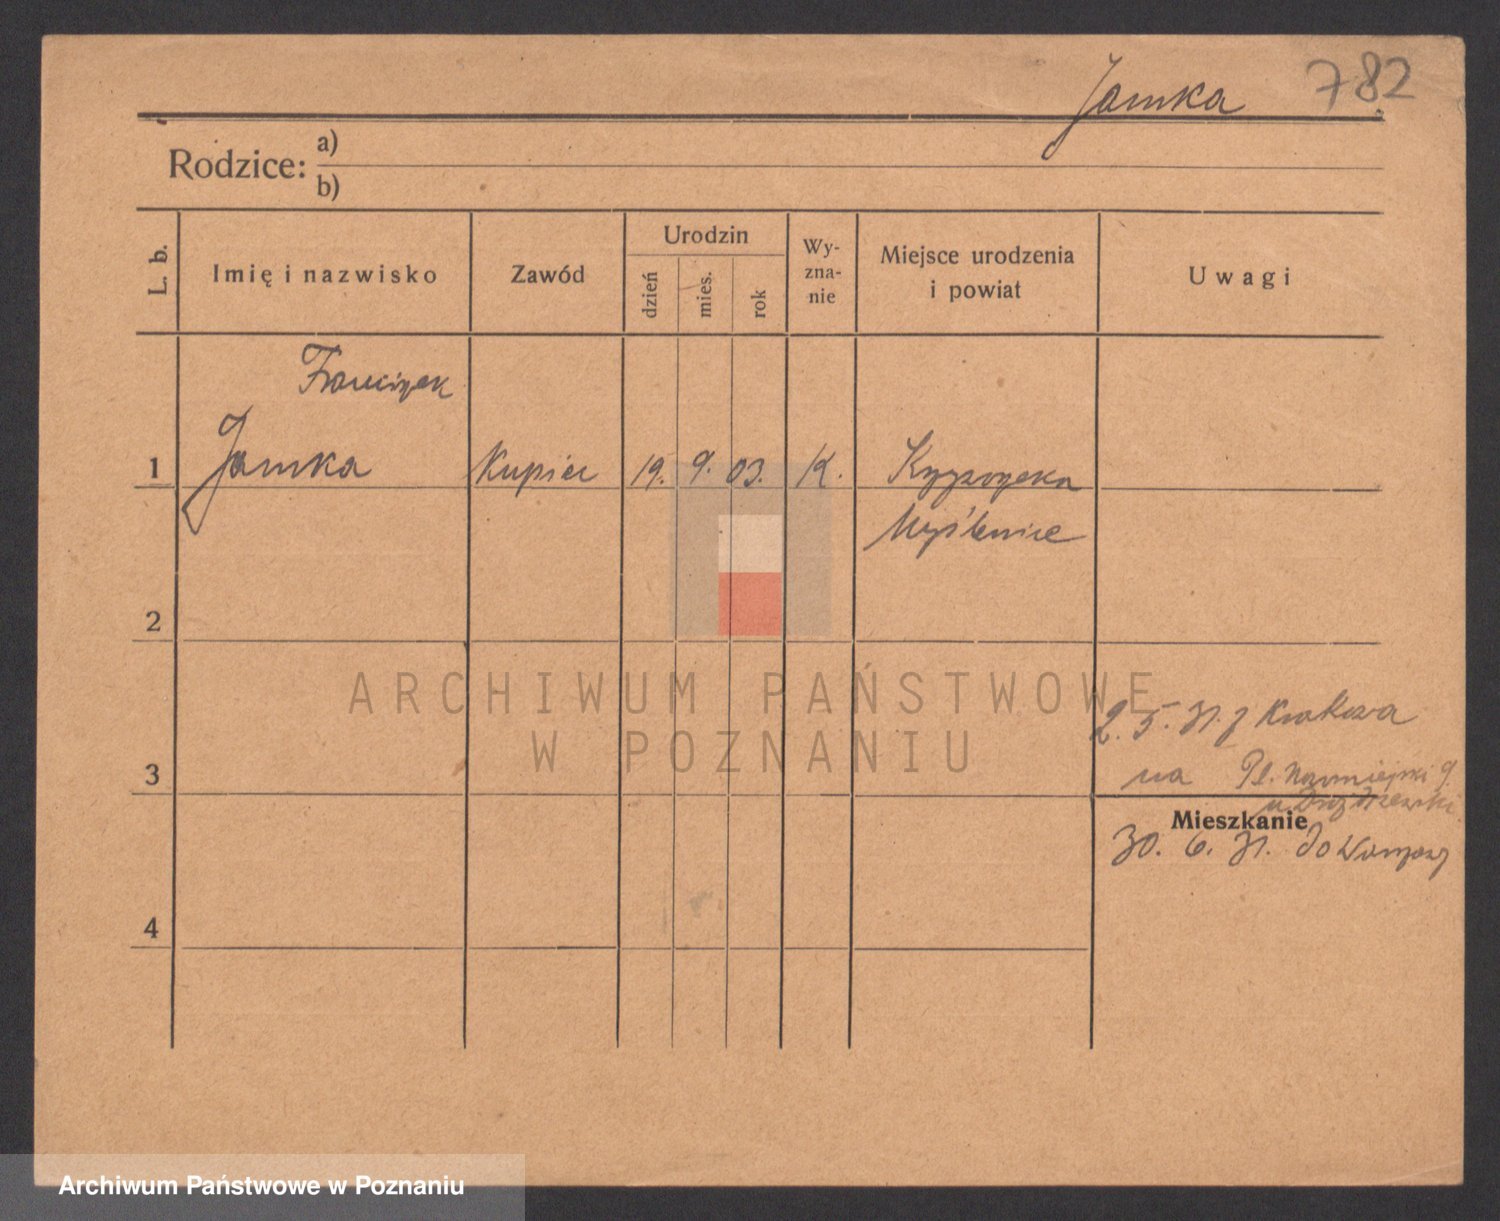 Jamka 782
Rodzice: a)
b)
L. b.
Imię i nazwisko
Zawód
Urodzin
dzień
mies.
rok
Wy-
zna-
nie
Miejsce urodzenia
i powiat
Uwagi
Franciszek
1 Jamka Kupiec 19. 9. 03. K.
Myślenice
2
ARCHIWUM PAŃSTWOWE
W POZNANIU
2. 5. 31. z Krakowa
3 na Pl. Nowomiejski 9
Mieszkanie
30. 6. 31. do Warszawy
4
Archiwum Państwowe w Poznaniu